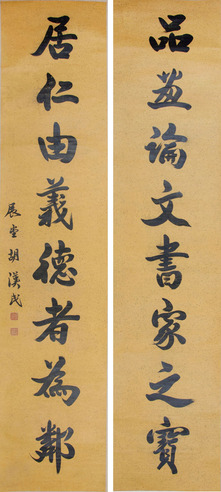 品画論文書家之寶
居仁由義德者為鄰
展堂胡漢民